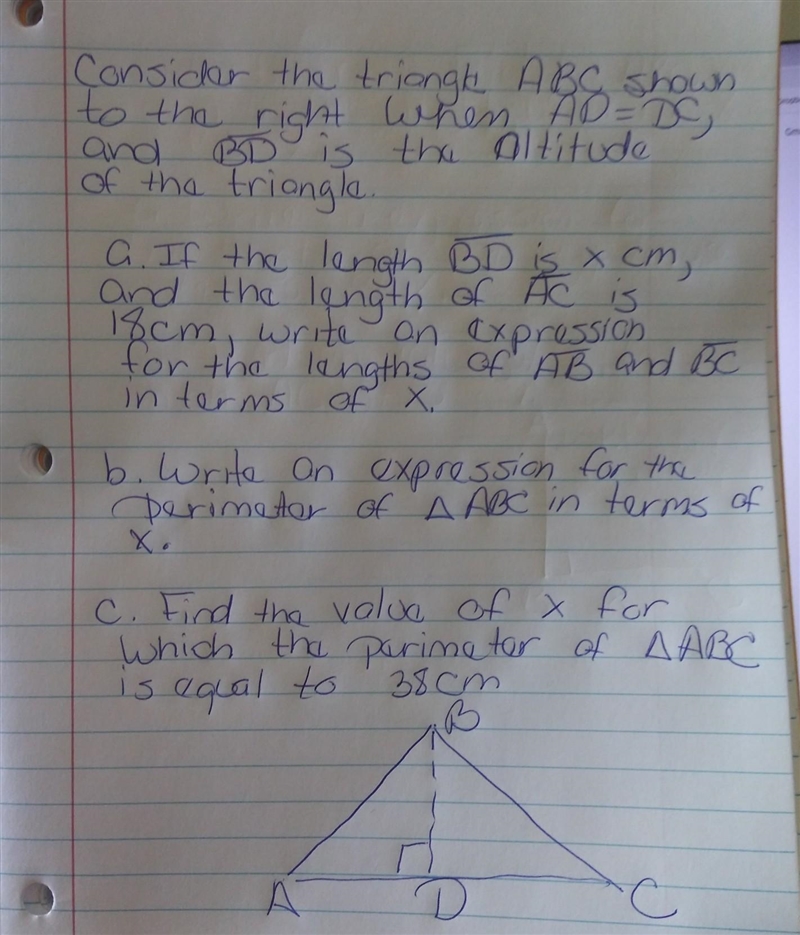 Consider the triangle ABC shown
to the right when AD = DC,
and BD is the Altitude
of the triangle.
a. If the length BD is x cm,
and the length of AC is
18cm, write an expression
for the lengths of AB and BC
in terms of x.
b. Write an expression for the
perimeter of △ ABC in terms of
x.
c. Find the value of x for
which the perimeter of △ABC
is equal to 38cm
B
A D C